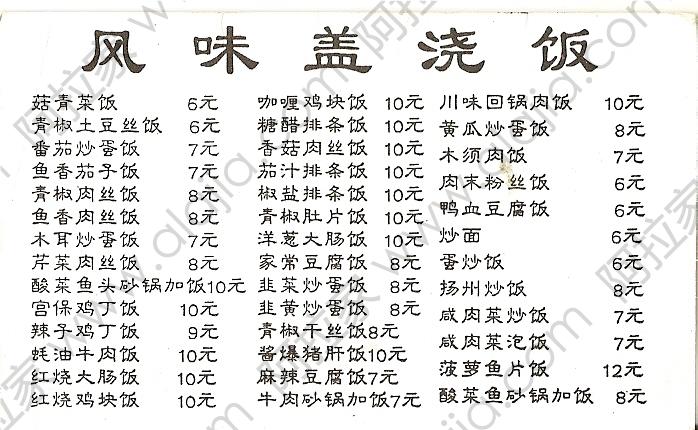 风味盖浇饭
菇青菜饭 6元
青椒土豆丝饭 6元
番茄炒蛋饭 7元
鱼香茄子饭 7元
青椒肉丝饭 8元
鱼香肉丝饭 8元
木耳炒蛋饭 7元
芹菜肉丝饭 8元
酸菜鱼头砂锅加饭10元
宫保鸡丁饭 10元
辣子鸡丁饭 9元
蚝油牛肉饭 10元
红烧大肠饭 10元
红烧鸡块饭 10元
咖喱鸡块饭 10元
糖醋排条饭 10元
香菇肉丝饭 10元
茄汁排条饭 10元
椒盐排条饭 10元
青椒肚片饭 10元
洋葱大肠饭 10元
家常豆腐饭 8元
韭菜炒蛋饭 8元
韭黄炒蛋饭 8元
青椒干丝饭8元
酱爆猪肝饭10元
麻辣豆腐饭7元
牛肉砂锅加饭7元
川味回锅肉饭 10元
黄瓜炒蛋饭 8元
木须肉饭 7元
肉末粉丝饭 6元
鸭血豆腐饭 6元
炒面 6元
蛋炒饭 6元
扬州炒饭 8元
咸肉菜炒饭 7元
咸肉菜泡饭 7元
菠萝鱼片饭 12元
酸菜鱼砂锅加饭 8元
阿拉家 www.alajia.com